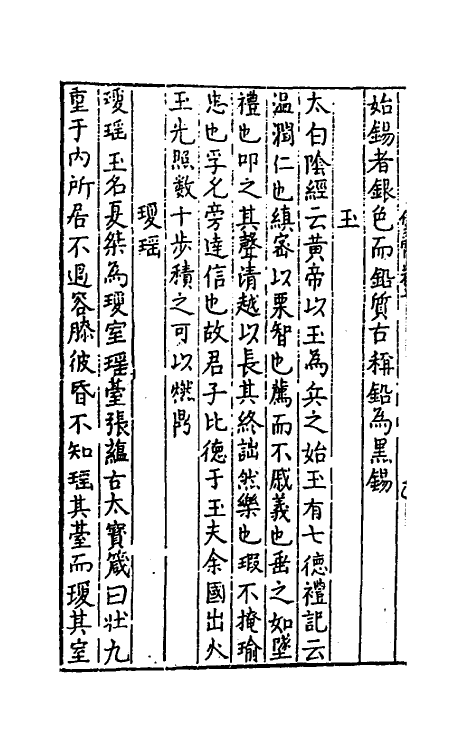 始錫者銀色而鉛質古稱鉛為黒錫
玉
太白陰經云黃帝以玉為兵之始玉有七德禮記云
温潤仁也縝密以栗智也廉而不戚義也垂之如墜
禮也叩之其聲清越以長其終詘然樂也瑕不掩瑜
忠也孚尤旁達信也故君子比德于玉夫余國出火
玉光照數十步積之可以燃鼎
瓊瑶
瓊瑶玉名夏桀為瓊室瑶臺張藴古太寳箴曰壯九
重于内所居不過容膝彼昏不知瑶其臺而瓊其室